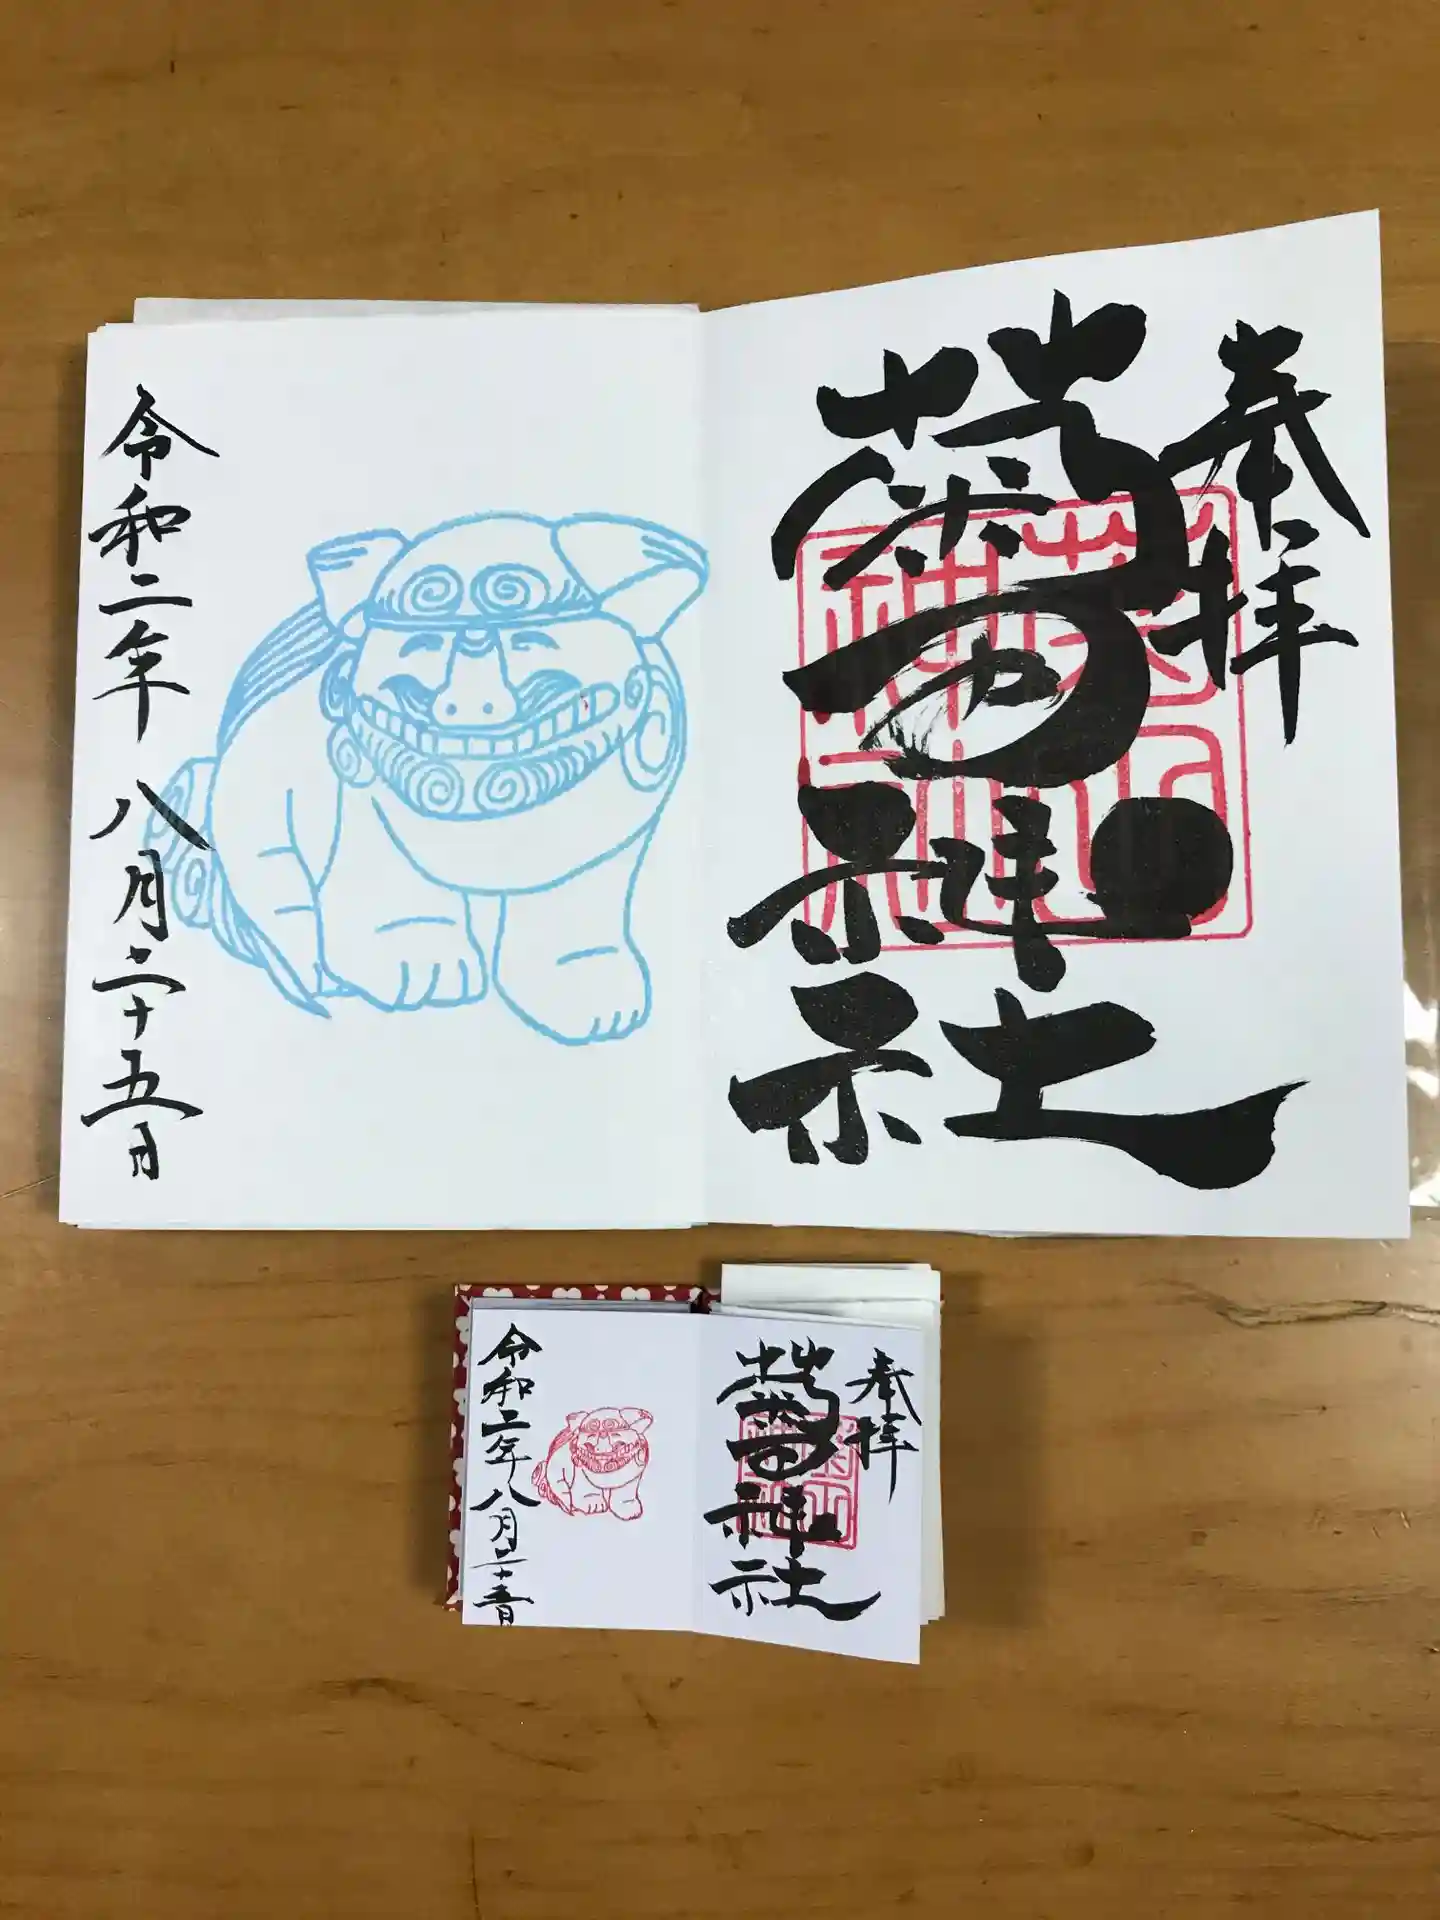 奉拝
菊田神社
令和二年八月二十五日
奉拝
菊田神社
令和二年八月二十五日